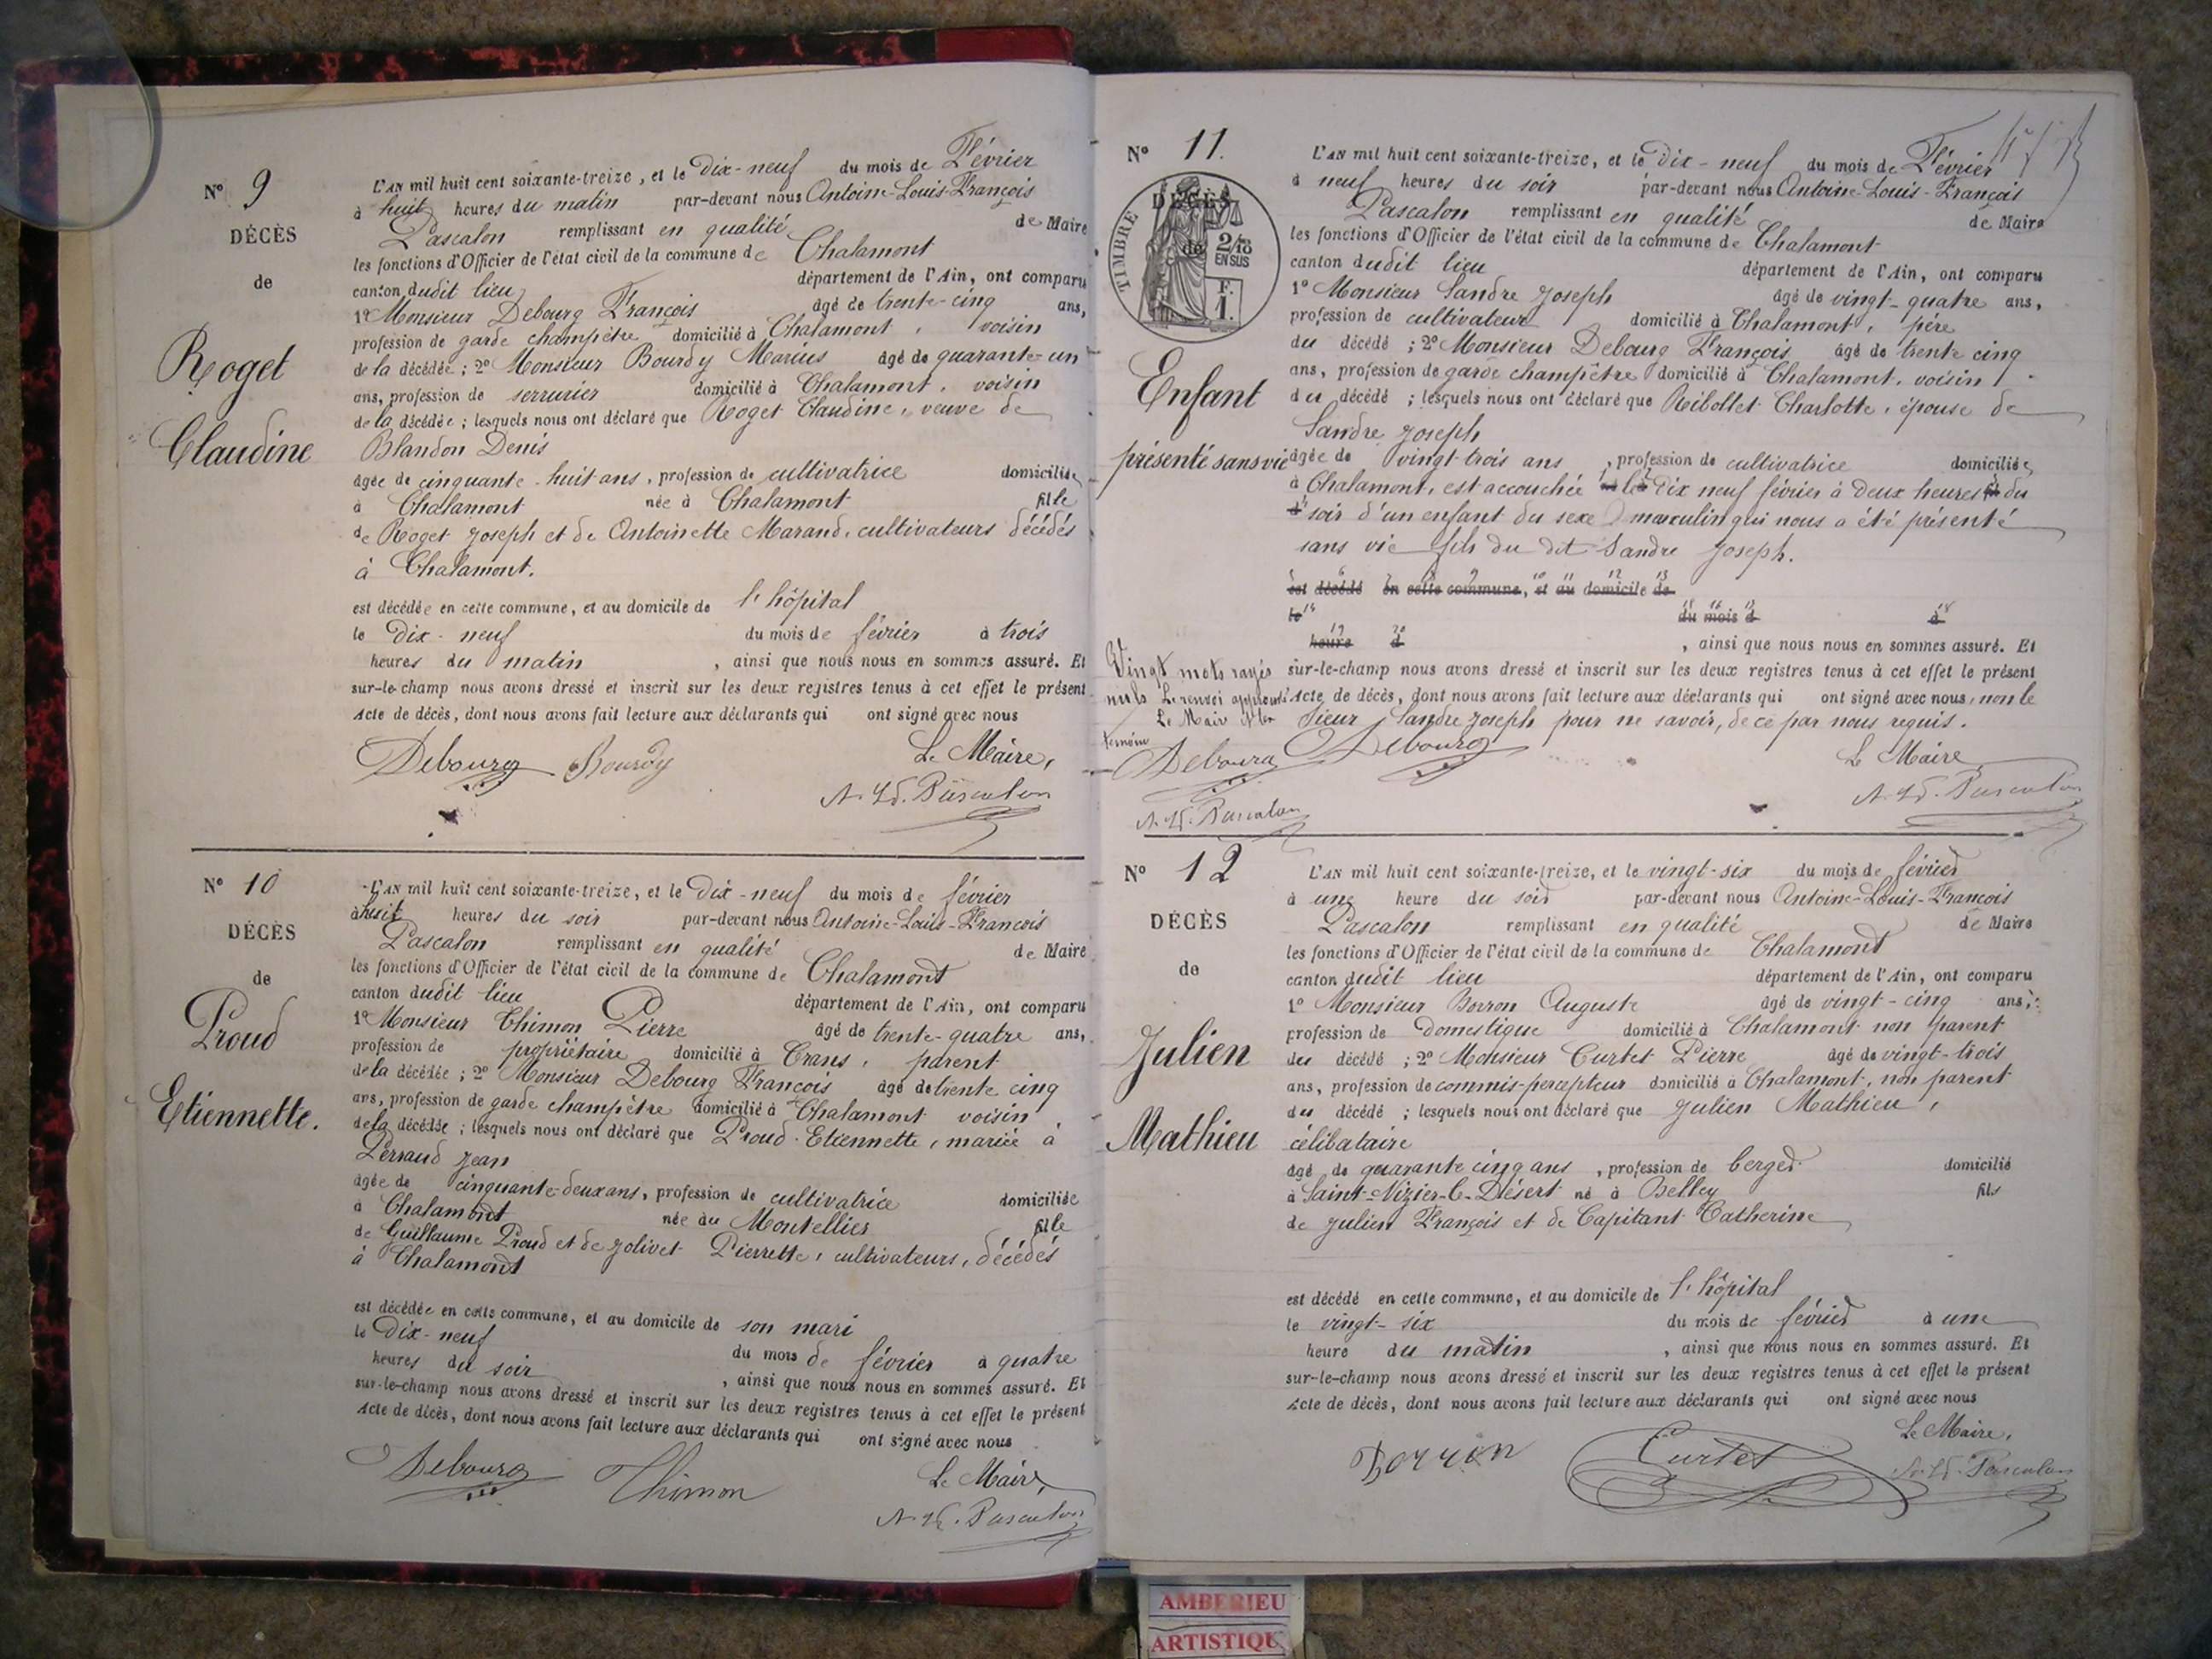 Nº 9
DÉCÈS
de
Roget
Claudine
L'AN mil huit cent soixante-treize, et le dix-neuf du mois de Février
à huit heures du matin par-devant nous Antoine-Louis-François
Pascalon remplissant en qualité de Maire
les fonctions d'Officier de l'état civil de la commune de Chalamont
canton dudit lieu département de l'Ain, ont comparu
1º Monsieur Debourg François âgé de trente-cinq ans,
profession de garde champêtre domicilié à Chalamont, voisin
de la décédée ; 2º Monsieur Bourdy Marius âgé de quarante-un
ans, profession de serrurier domicilié à Chalamont, voisin
de la décédée ; lesquels nous ont déclaré que Roget Claudine, veuve de
Blandon Denis
âgée de cinquante-huit ans, profession de cultivatrice domiciliée
à Chalamont née à Chalamont fille
de Roget Joseph et de Antoinette Marand, cultivateurs décédés
à Chalamont.
est décédée en cette commune, et au domicile de l'hôpital
le dix-neuf du mois de février à trois
heures du matin , ainsi que nous nous en sommes assuré. Et
sur-le-champ nous avons dressé et inscrit sur les deux registres tenus à cet effet le présent
Acte de décès, dont nous avons fait lecture aux déclarants qui ont signé avec nous
Debourg Bourdy Le Maire,
A. Ls. Pascalon
Nº 10
DÉCÈS
de
Proud
Etiennette.
L'AN mil huit cent soixante-treize, et le dix-neuf du mois de février
à huit heures du soir par-devant nous Antoine-Louis-François
Pascalon remplissant en qualité de Maire
les fonctions d'Officier de l'état civil de la commune de Chalamont
canton dudit lieu département de l'Ain, ont comparu
1º Monsieur Thimon Pierre âgé de trente-quatre ans,
profession de propriétaire domicilié à Crans, parent
de la décédée ; 2º Monsieur Debourg François âgé de trente cinq
ans, profession de garde champêtre domicilié à Chalamont voisin
de la décédée ; lesquels nous ont déclaré que Proud Etiennette, mariée à
Perraud Jean
âgée de cinquante-deux ans, profession de cultivatrice domiciliée
à Chalamont née au Montellier fille
de Guillaume Proud et de Jolivet Pierrette, cultivateurs, décédés
à Chalamont
est décédée en cette commune, et au domicile de son mari
le dix-neuf du mois de février à quatre
heures du soir , ainsi que nous nous en sommes assuré. Et
sur-le-champ nous avons dressé et inscrit sur les deux registres tenus à cet effet le présent
Acte de décès, dont nous avons fait lecture aux déclarants qui ont signé avec nous
Debourg Thimon Le Maire,
A. Ls. Pascalon
Nº 11.
TIMBRE
DÉCÈS
de
2/10
EN SUS
F.
1.
Enfant
présenté sans vie
L'AN mil huit cent soixante-treize, et le dix-neuf du mois de Février
à neuf heures du soir par-devant nous Antoine-Louis-François
Pascalon remplissant en qualité de Maire
les fonctions d'Officier de l'état civil de la commune de Chalamont
canton dudit lieu département de l'Ain, ont comparu
1º Monsieur Sandre Joseph âgé de vingt-quatre ans,
profession de cultivateur domicilié à Chalamont, père
du décédé ; 2º Monsieur Debourg François âgé de trente cinq
ans, profession de garde champêtre domicilié à Chalamont, voisin
du décédé ; lesquels nous ont déclaré que Ribollet Charlotte, épouse de
Sandre Joseph
âgée de vingt-trois ans , profession de cultivatrice domiciliée
à Chalamont, est accouchée le dix neuf février à deux heures du
soir d'un enfant du sexe masculin qui nous a été présenté
sans vie fils du dit Sandre Joseph.
est décédé en cette commune, et au domicile de
le du mois d à
heure d , ainsi que nous nous en sommes assuré. Et
sur-le-champ nous avons dressé et inscrit sur les deux registres tenus à cet effet le présent
Acte de décès, dont nous avons fait lecture aux déclarants qui ont signé avec nous, non le
sieur Sandre Joseph pour ne savoir, de ce par nous requis.
Vingt mots rayés
nuls Le renvoi approuvé
Le Maire et les
témoins
Debourg
A. Ls. Pascalon
Debourg Le Maire
A. Ls. Pascalon
Nº 12
DÉCÈS
de
Julien
Mathieu
L'AN mil huit cent soixante-treize, et le vingt-six du mois de février
à une heure du soir par-devant nous Antoine-Louis-François
Pascalon remplissant en qualité de Maire
les fonctions d'Officier de l'état civil de la commune de Chalamont
canton dudit lieu département de l'Ain, ont comparu
1º Monsieur Borron Auguste âgé de vingt-cinq ans,
profession de domestique domicilié à Chalamont non parent
du décédé ; 2º Monsieur Curtet Pierre âgé de vingt-trois
ans, profession de commis-percepteur domicilié à Chalamont, non parent
du décédé ; lesquels nous ont déclaré que Julien Mathieu,
célibataire
âgé de quarante cinq ans , profession de berger domicilié
à Saint-Nizier-le-Désert né à Belley fils
de Julien François et de Capitant Catherine
est décédé en cette commune, et au domicile de l'hôpital
le vingt-six du mois de février à une
heure du matin , ainsi que nous nous en sommes assuré. Et
sur-le-champ nous avons dressé et inscrit sur les deux registres tenus à cet effet le présent
Acte de décès, dont nous avons fait lecture aux déclarants qui ont signé avec nous
Le Maire,
Borron Curtet A. Ls. Pascalon
AMBERIEU
ARTISTIQU